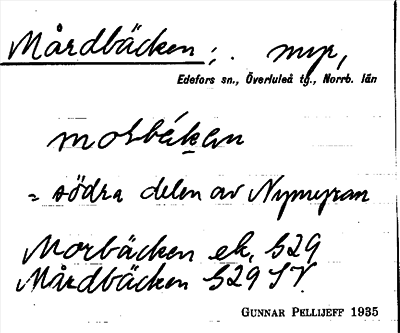 Mårdbäcken; . myr,
Edefors sn., Överluleå tg., Norrb. län
morbäken
= södra delen av Nymyran
Morbäcken ek. 529
Mårdbäcken 529 SV
GUNNAR PELLIJEFF 1935